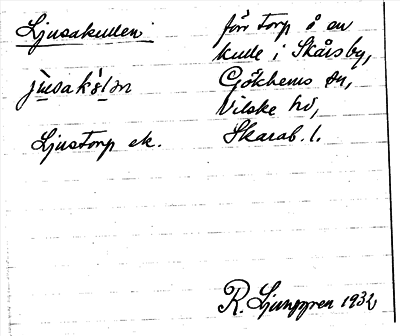 Ljusakullen
jusakúlən
Ljustorp ek.
förr torp å en
kulle i Skårsby,
Gökhems sn,
Vilske hd,
Skarab. l.
R. Ljunggren 1932